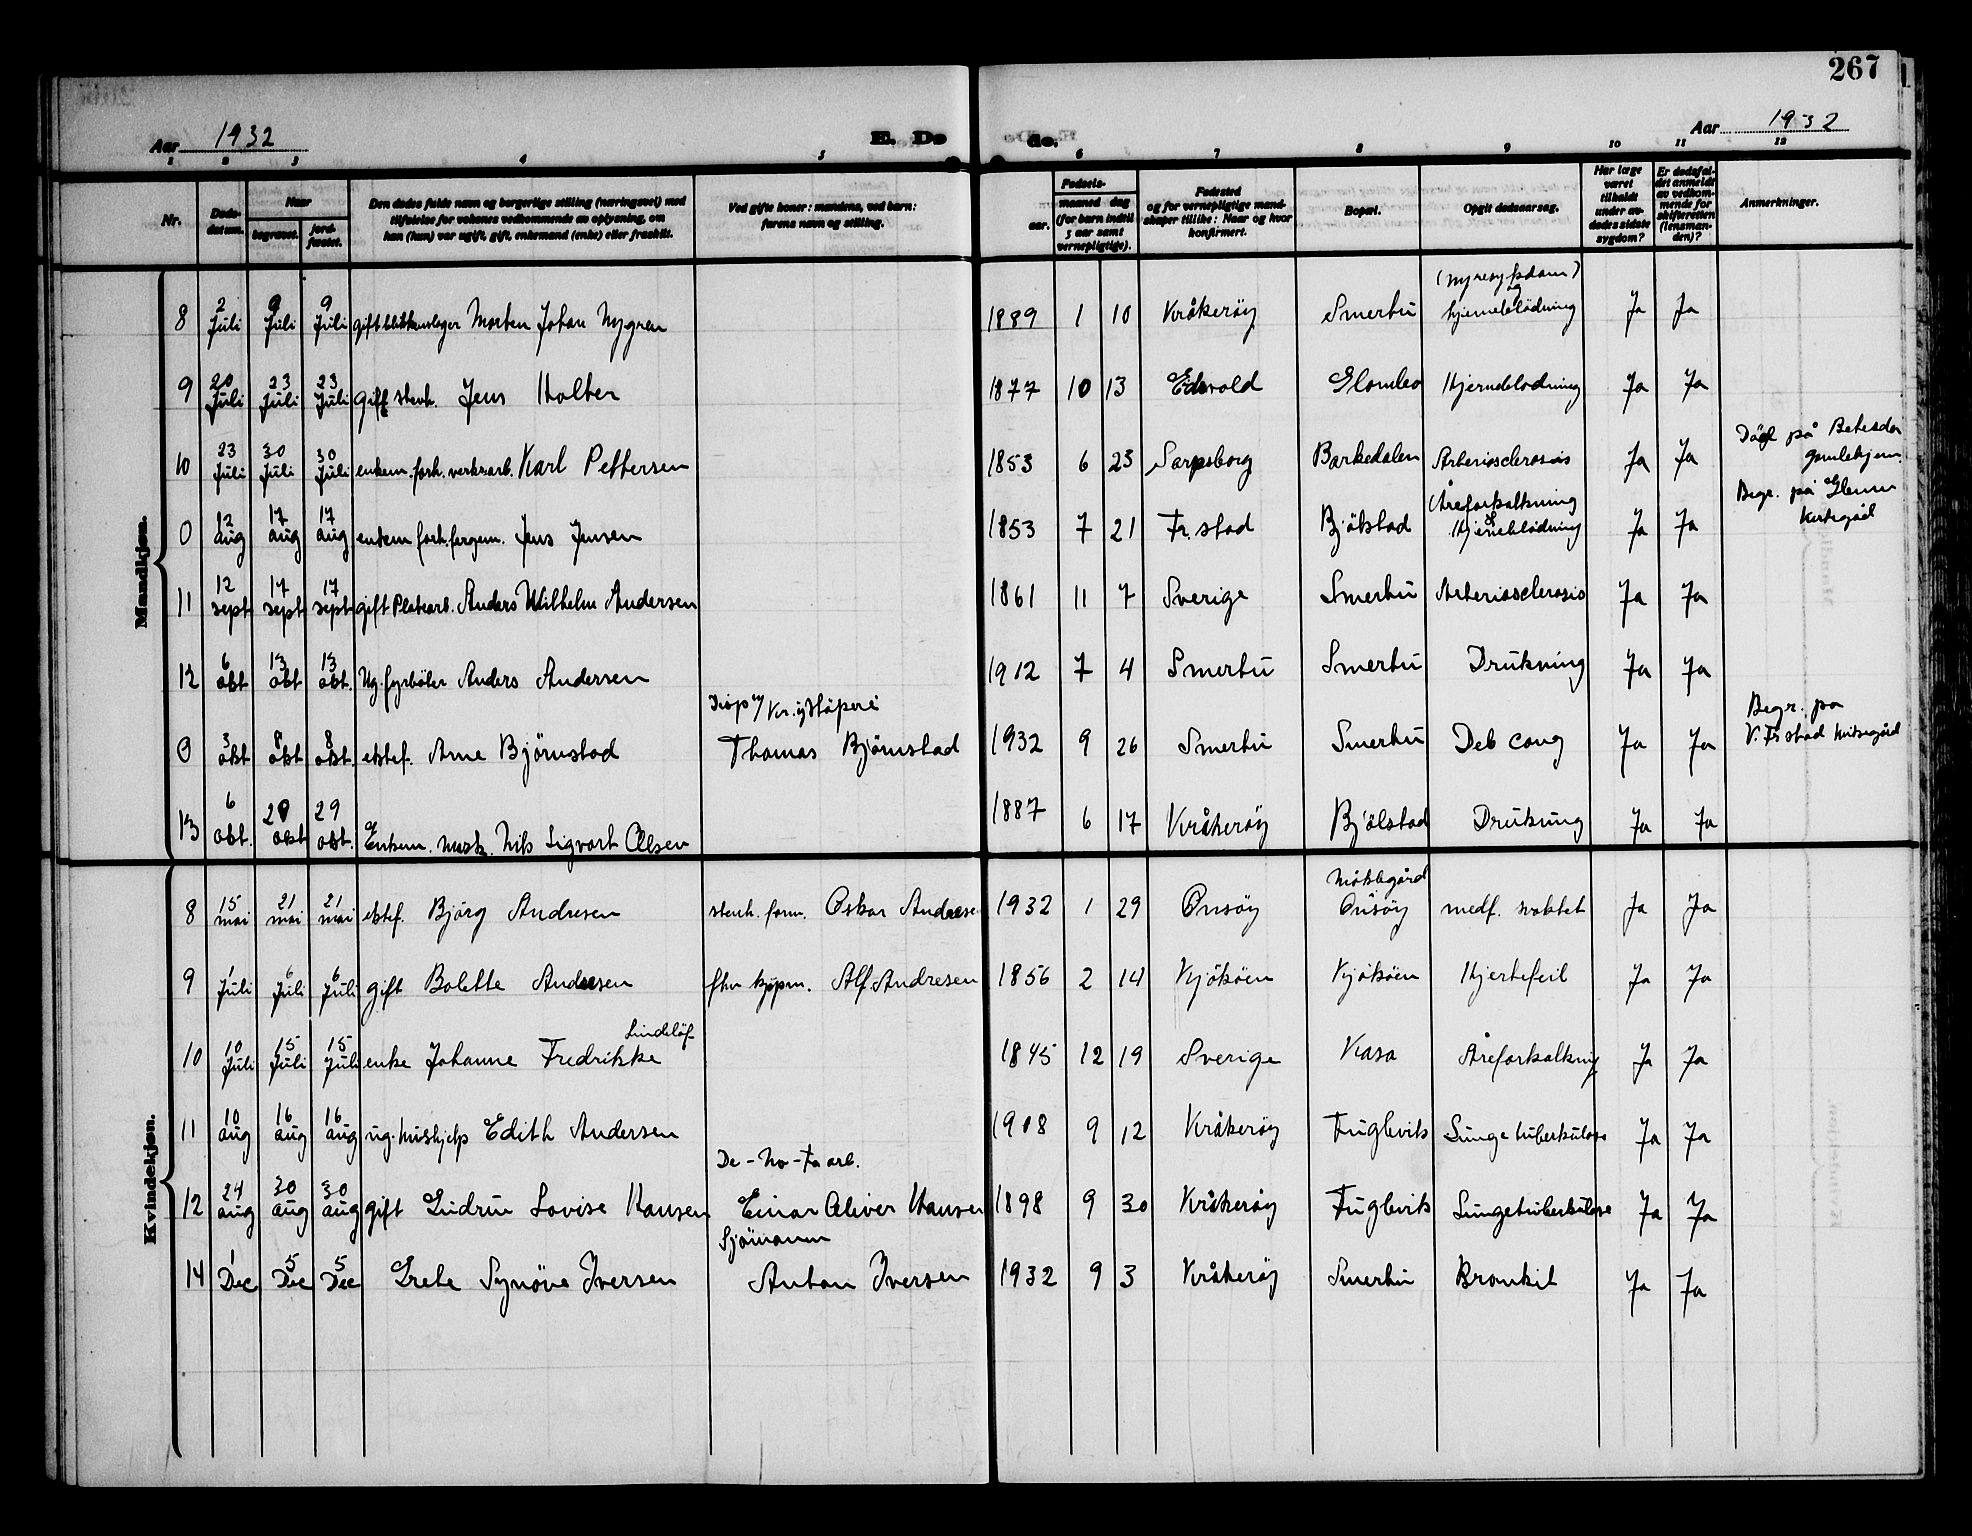 267
Aar 1932 E. Dø
de. Aar 1932
1 2 3 4 5 6 7 8 9 10 11 12
Nr.
Døds-
datum.
Naar
begravet.
jord-
fæstet.
Den dødes fulde navn og borgerlige stilling (næringsvei) med
tilføielse for voksnes vedkommende av oplysning, om
han (hun) var ugift, gift, enkemand (enke) eller fraskilt.
Ved gifte koner: mandens, ved barn:
farens navn og stilling.
Fødsels-
aar.
maaned dag
(for barn indtil
5 aar samt
vernepligtige).
Fødested
og for vernepligtige mand-
skaper tillike: Naar og hvor
konfirmert.
Bopæl.
Opgit dødsaarsag.
Har læge
været
tilkaldt
under av-
dødes sidste
sygdom?
Er dødsfal-
det anmeldt
av vedkom-
mende for
skifteretten
(lensman-
den)?
Anmerkninger.
Mandkjøn.
(nyresykdom)
8 2 Juli 9 Juli 9 Juli gift blikkenslager Morten Johan Nygren 1889 1 10 Kråkerøy Smertu og hjerneblödning Ja Ja
9 20 Juli 23 Juli 23 Juli gift stenh. Jens Holter 1877 10 13 Eidsvold Glombo Hjerneblødning Ja Ja
Död på Betesda
gamlehjem.
10 23 Juli 30 Juli 30 Juli enkem. forh. verksarb. Karl Pettersen 1853 6 23 Sarpsborg Barkedalen Arteriosclerosis Ja Ja
Begr. på Glemmen
Kirkegård
Åreforkalkning
0 12 aug 17 aug 17 aug enkem forh. fergem. Jens Jensen 1853 7 21 Fr.stad Bjölstad & Hjerneblödning Ja Ja
11 12 sept 17 sept 17 sept gift Platearb. Anders Wilhelm Andersen 1861 11 7 Sverige Smertu Arteriosclerosis Ja Ja
12 6 okt 13 okt 13 okt. Ug. fyrböter Anders Andersen 1912 7 4 Smertu Smertu Drukning Ja Ja
Disp v/ Kr.öy Støperi
Begr. på
V. Fr.stad kirkegård
0 3 okt 8 okt 8 okt. ektef. Arne Björnstad Thomas Björnstad 1932 9 26 Smertu Smertu Deb cong Ja Ja
13 6 okt. 29 okt 29 okt. Enkem. mask. Nils Sigvart Olsen 1887 6 17 Kråkeröy Bjölstad Drukning Ja Ja
Kvindekjøn.
8 15 mai 21 mai 21 mai ektef. Björg Andresen stenh. form. Oskar Andresen 1932 1 29 Onsöy Möklegård Onsöy medf. svakhet Ja Ja
9 1 Juli 6 Juli 6 Juli gift Bolette Andresen fhv kjøpm. Alf. Andresen 1856 2 14 Kjököen Kjököen Hjertefeil Ja Ja
Lindelöf
10 10 Juli 15 Juli 15 Juli enke Johanne Fredrikke 1845 12 19 Sverige Kasa Åreforkalkning Ja Ja
11 10 aug 16 aug 16 aug ug. hushjelp Edith Andersen 1908 9 12 Kråkeröy Fuglevik Lungetuberkulose Ja Ja
De-No-Fa arb.
12 24 aug 30 aug 30 aug gift Gudrun Lovise Hansen Einar Oliver Hansen 1898 9 30 Kråkeröy Fuglevik Lungetuberkulose Ja Ja
Sjömann
14 1 Dec 5 Dec 5 Dec Grete Synöve Iversen Anton Iversen 1932 9 3 Kråkeröy Smertu Bronkit Ja Ja